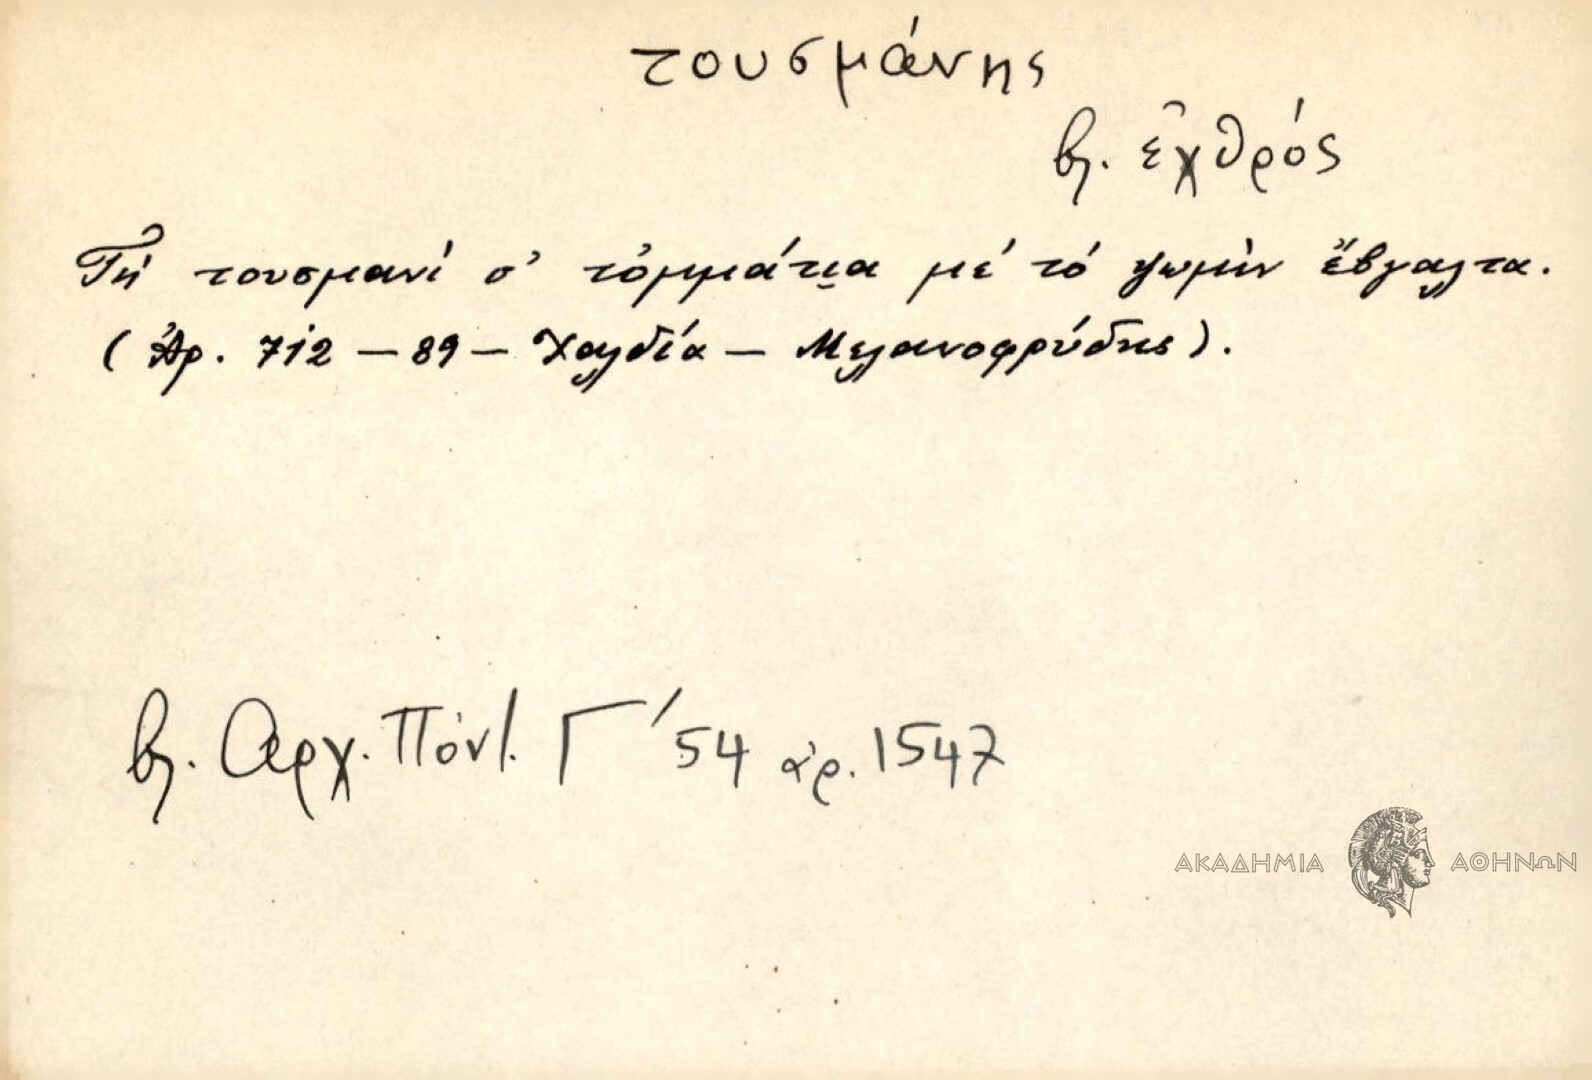 τουσμάνης
βλ. ἐχθρός
Τῆ τουσμανί σ' τὀμμάτι̮α μέ τό ψωμίν ἔβγαλτα.
(Ἀρ. 712 – 89 – Χαλδία – Μελανοφρύδης).
βλ. Αρχ. Πόντ. Γ' 54 ἀρ. 1547
ΑΚΑΔΗΜΙΑ ΑΘΗΝΩΝ